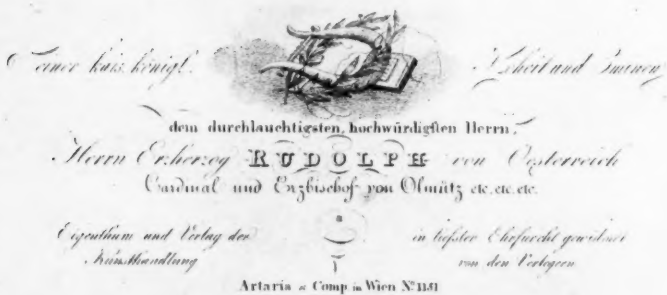 Seiner kais. königl. Hoheit und Eminenz
dem durchlauchtigsten, hochwürdigsten Herrn,
Herrn Erzherzog RUDOLPH von Oesterreich
Cardinal und Erzbischof von Olmütz etc. etc. etc.
Eigenthum und Verlag der in tiefster Ehrfurcht gewidmet
Kunsthandlung von den Verlegern
Artaria & Comp in Wien Nº 1151